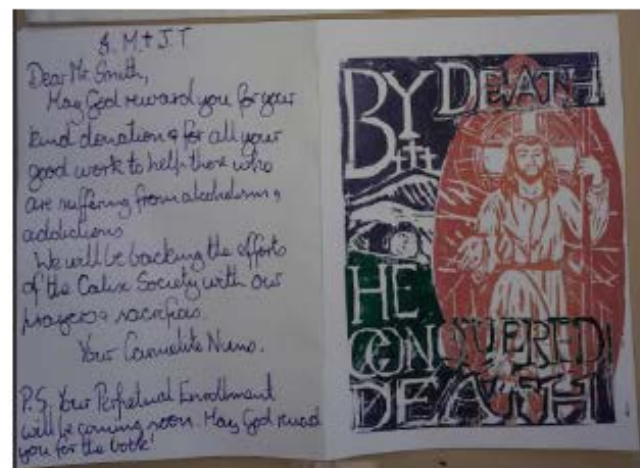 J. M. + J. T
Dear Mr. Smith,
May God reward you for your
kind donation & for all your
good work to help those who
are suffering from alcoholism &
addictions
We will be backing the efforts
of the Calix Society with our
prayers & sacrifices.
Your Carmelite Nuns.
P.S. Your Perpetual Enrollment
will be coming soon. May God reward
you for the book!
BY DEATH
HE
CONQUERED
DEATH